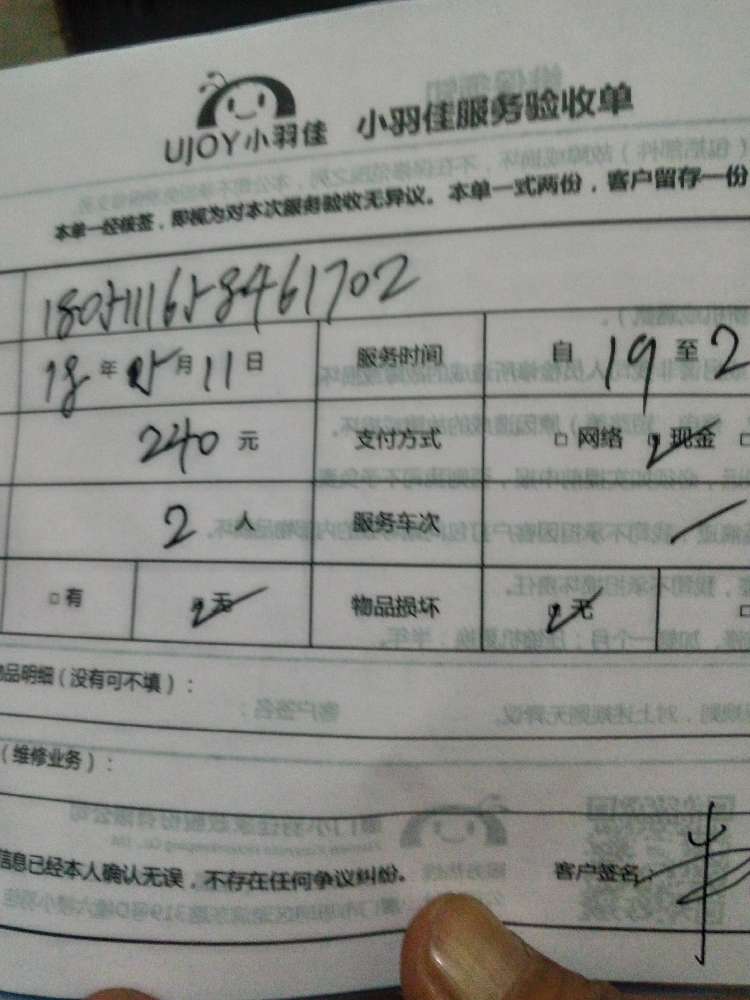 UJOY小羽佳 小羽佳服务验收单
本单一经核签，即视为对本次服务验收无异议。本单一式两份，客户留存一份
1805111658461702
18年05月11日 服务时间 自19至2
240元 支付方式 □网络 □现金 □
2人 服务车次
□有 □无 物品损坏 □无 □
品明细（没有可不填）：
（维修业务）：
信息已经本人确认无误，不存在任何争议纠纷。 客户签名：